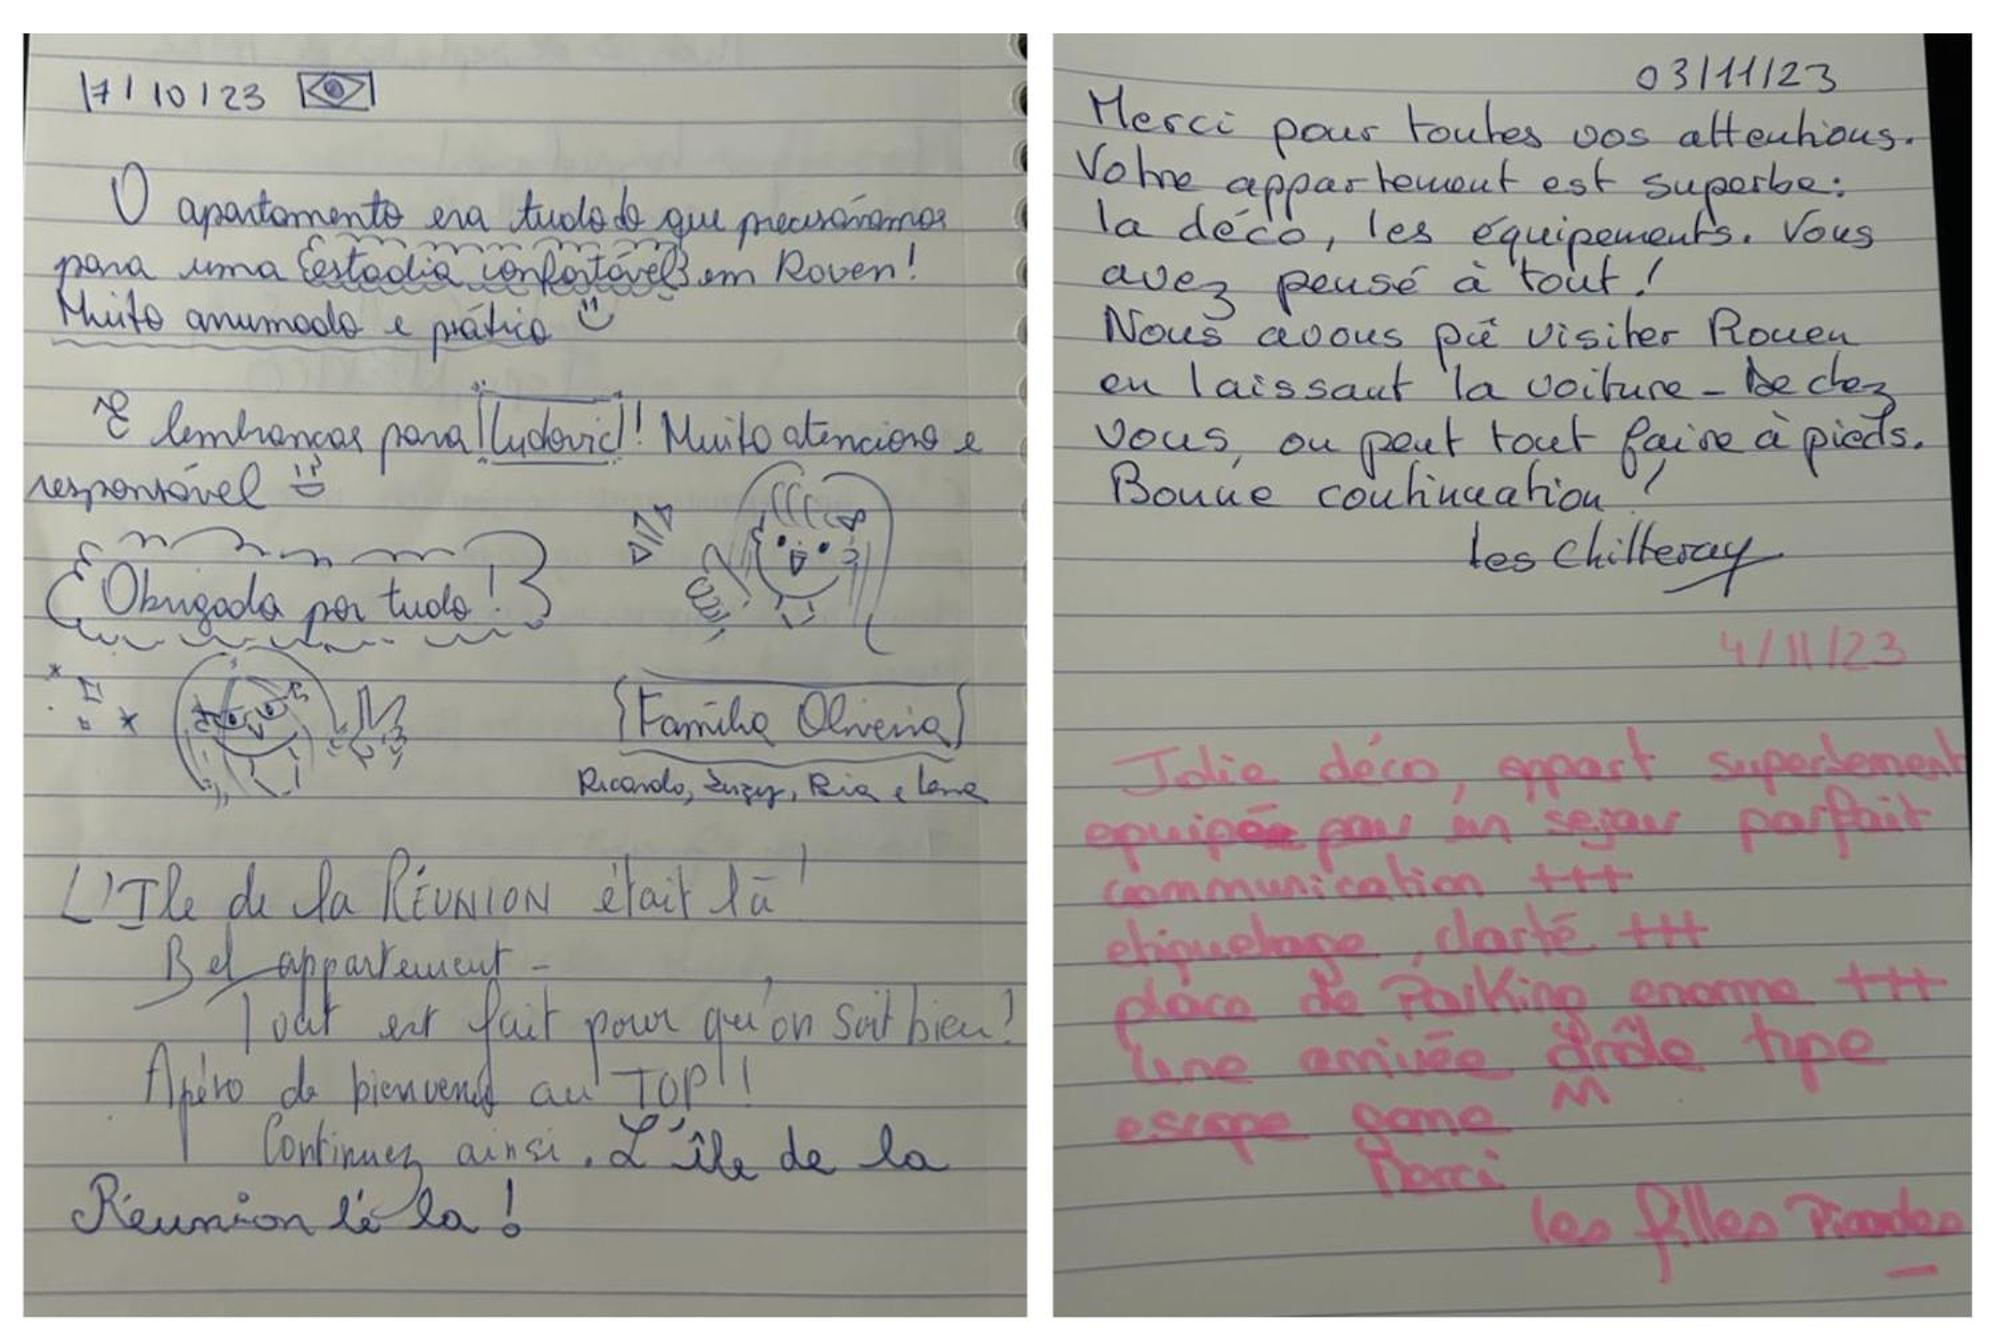 17/10/23
O apartamento era tudo do que precisávamos
para uma estadia confortável em Rouen!
Muito arrumado e prático
E lembranças para Ludovic! Muito atencioso e
responsável
Obrigada por tudo!
Família Oliveira
Ricardo, Suzy, Bia e
L'Ile de la RÉUNION était là!
Bel appartement -
Tout est fait pour qu'on soit bien!
Apéro de bienvenue au TOP!!
Continuez ainsi. L'île de la
Réunion lé la!
03/11/23
Merci pour toutes vos attentions.
Votre appartement est superbe:
la déco, les équipements. Vous
avez pensé à tout!
Nous avons pû visiter Rouen
en laissant la voiture - De chez
vous, on peut tout faire à pieds.
Bonne continuation!
Les
4/11/23
Jolie déco, appart superbement
equipée pour un sejour parfait
communication +++
etiquetage, clarté +++
place de Parking enorme +++
Une arrivée drôle type
escape game ^^
Merci
les filles Picardes